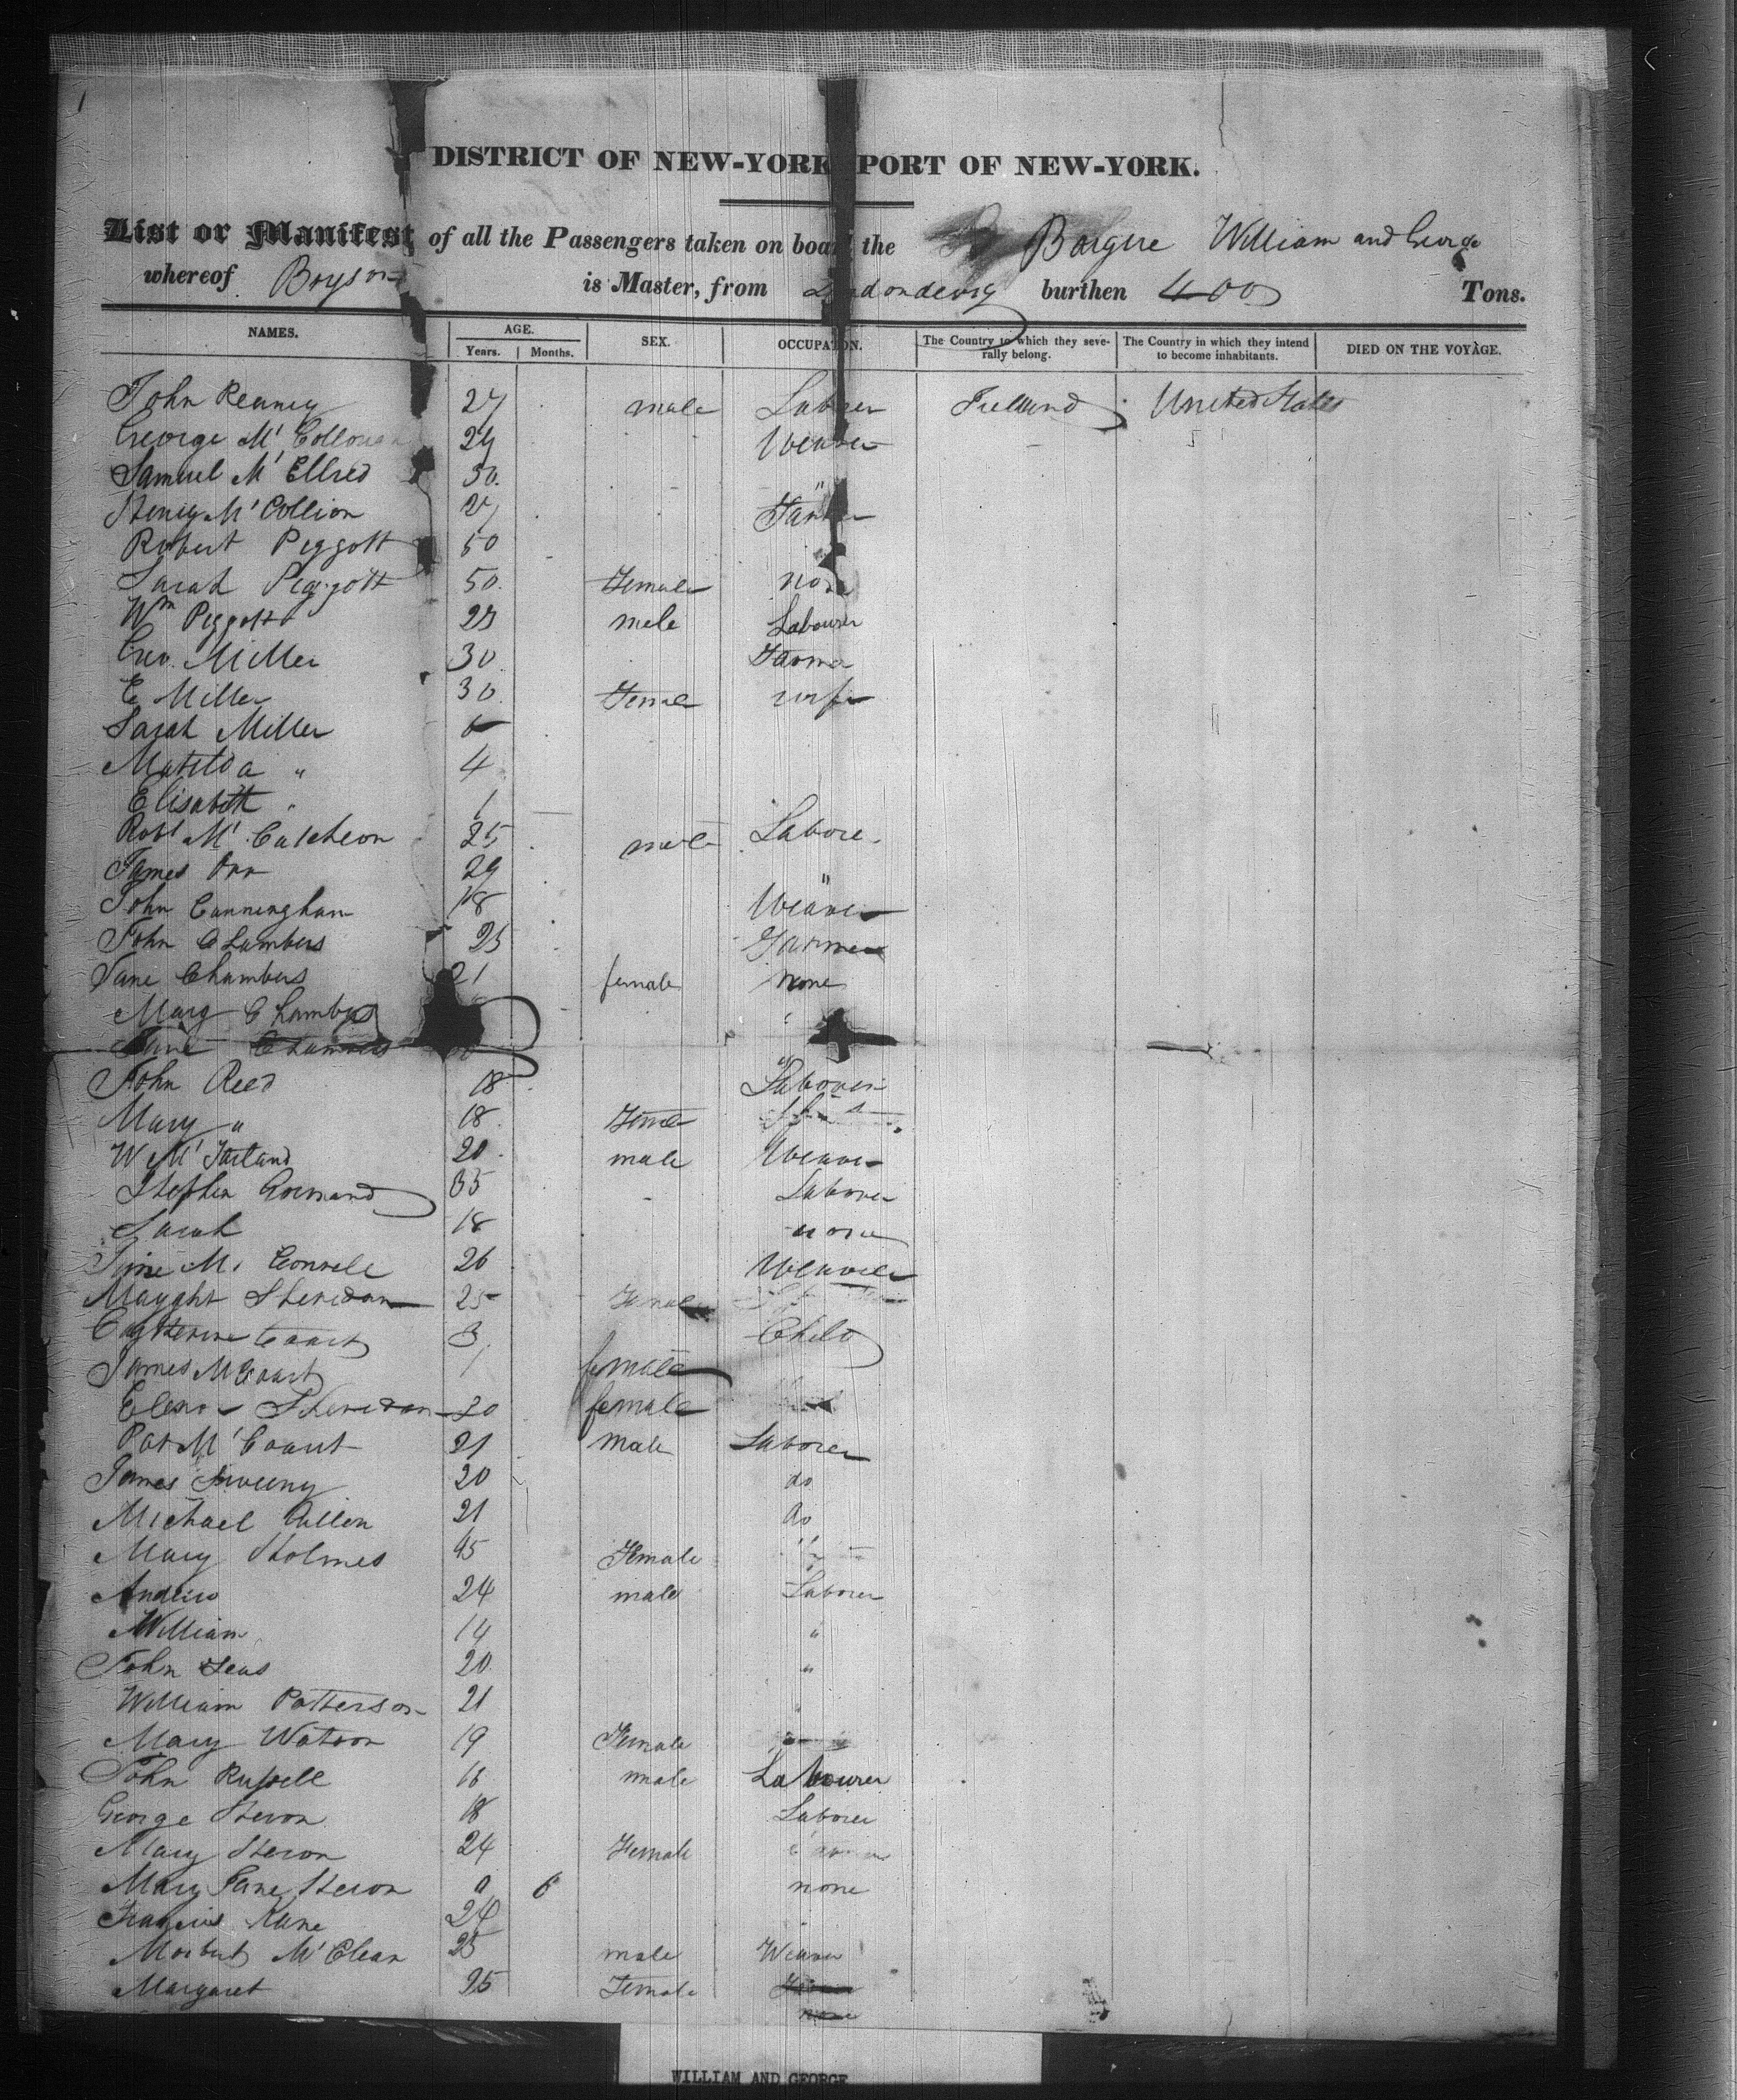 1
DISTRICT OF NEW-YORK PORT OF NEW-YORK.
List or Manifest of all the Passengers taken on board the Barque William and George
whereof Boyson is Master, from Londonderry burthen 400 Tons.
NAMES. AGE. Years. Months. SEX. OCCUPATON. The Country to which they severally belong. The Country in which they intend to become inhabitants. DIED ON THE VOYAGE.
John 27 male Laborer Ireland United States
George Mc 24 Weaver
Samuel Mc Ellred 50.
Henry Mc Collion 27 " Farmer
Robert Peggott 50
Sarah Peggott 50. Female none
Wm Peggott 23 male Labourer
Geo. Miller 30 Farmer
E Miller 30 Female wife
Sarah Miller 6
Matilda " 4
Elisabeth " 1
Robt Mc Cutcheon 25 male Labore.
James Orr 29
John Cunningham 18 " Weaver
John Chambers 25 Farmer
Jane Chambers 21 female none
Mary Chambers
Jane Chambers
John Reed 18 Laborer
Mary " 18 Female
W Mc Farland 20 male Weaver
Stephen 35 Laborer
Sarah 18 none
26 Weaver
Sheridan 25 Female
Catherine 3 Child
James McCourt 1 female
Sheridan 20 female
Pat Mc Court 21 male Laborer
James Sweeny 20 do
Michael Cullen 21 do
Mary Holmes 45 Female
Andrew 24 male Laborer
William 14 "
John 20 "
William Patterson 21
Mary Watson 19 Female
John Russell 18 male Labourer
George Heron 18 Laborer
Mary Heron 24 Female
Mary Jane Heron 0 6 none
Francis Kane 24
Mc Clean 25 male Weaver
Margaret 25 Female
none
WILLIAM AND GEORGE